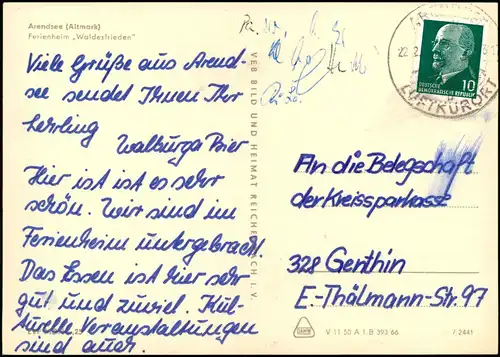 Arendsee (Altmark)
Ferienheim „Waldesfrieden"
Viele Grüße aus Arend-
see sendet Ihnen Ihr
Lehrling
Walburga Bier
Hier ist ist es sehr
schön. Wir sind im
Ferienheim untergebracht.
Das Essen ist hier sehr
gut und zuviel. Kul-
turelle Veranstaltungen
sind auch.
VEB BILD UND HEIMAT REICHENBACH I. V.
LUFTKURORT
10
DEUTSCHE
DEMOKRATISCHE REPUBLIK
An die Belegschaft
der Kreissparkasse
328 Genthin
E.-Thälmann-Str. 97
V 11 50 A 1 B 392 66
F 2441